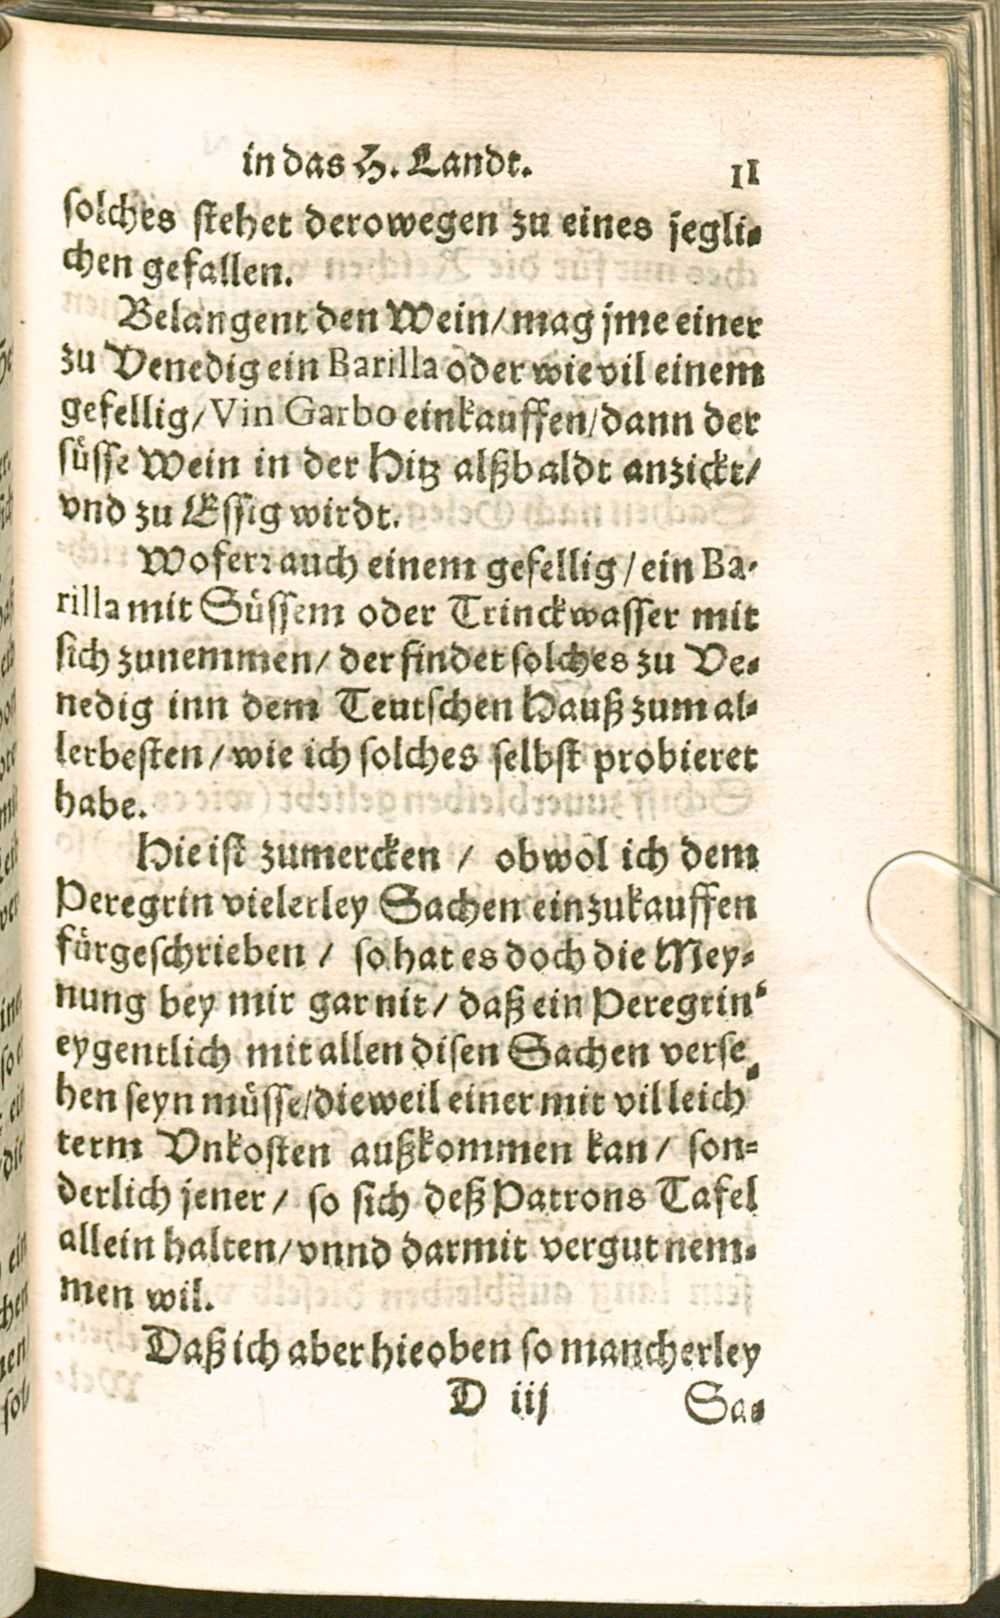 in das H. Landt. 11
solches stehet derowegen zu eines jegli-
chen gefallen.
Belangent den Wein/ mag jme einer
zu Venedig ein Barilla oder wie vil einem
gefellig/ Vin Garbo einkauffen/ dann der
süsse Wein in der Hitz alßbaldt anzickt/
vnd zu Essig wirdt.
Wofern auch einem gefellig/ ein Ba-
rilla mit Süssem oder Trinckwasser mit
sich zunemmen/ der findet solches zu Ve-
nedig inn dem Teutschen Hauß zum al-
lerbesten/ wie ich solches selbst probieret
habe.
Hie ist zumercken / obwol ich dem
Peregrin vielerley Sachen einzukauffen
fürgeschrieben / so hat es doch die Mey-
nung bey mir gar nit/ daß ein Peregrin
eygentlich mit allen disen Sachen verse-
hen seyn müsse/ dieweil einer mit vil leich-
term Vnkosten außkommen kan/ son-
derlich jener/ so sich deß Patrons Tafel
allein halten/ vnnd darmit vergut nem-
men wil.
Daß ich aber hieoben so mancherley
D iij Sa-